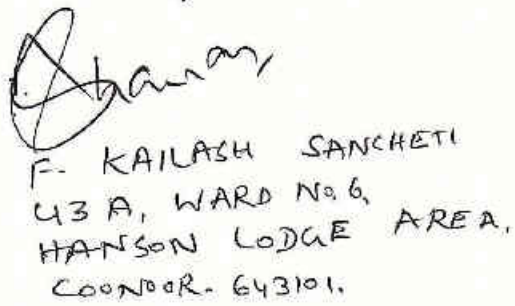 F. KAILASH SANCHETI
43 A, WARD No. 6,
HANSON LODGE AREA,
COONOOR. 643101.